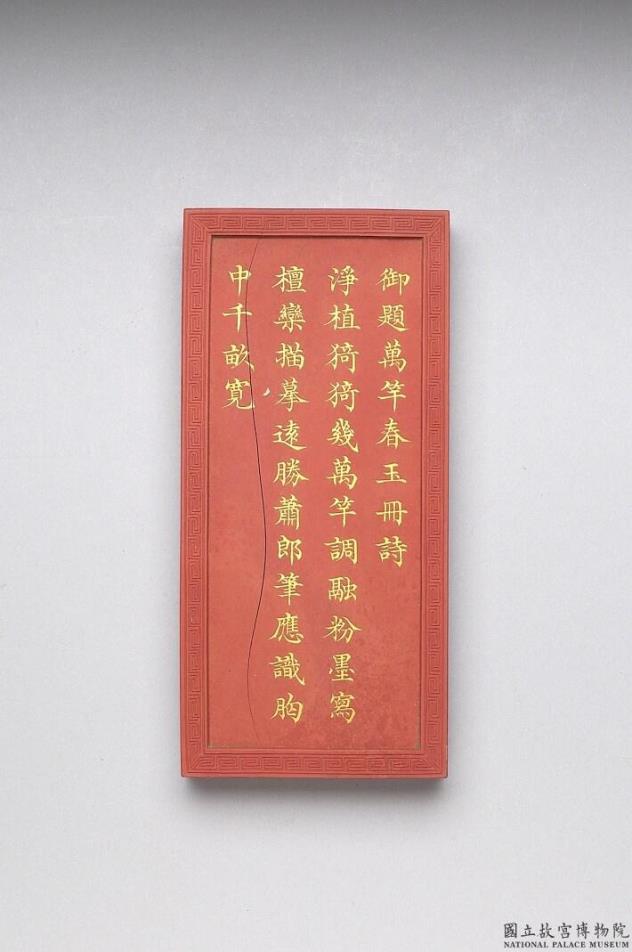 御題萬竿春玉冊詩
淨植猗猗幾萬竿調融粉墨寫
檀欒描摹遠勝蕭郎筆應識胸
中千畝寬
國立故宮博物院
NATIONAL PALACE MUSEUM